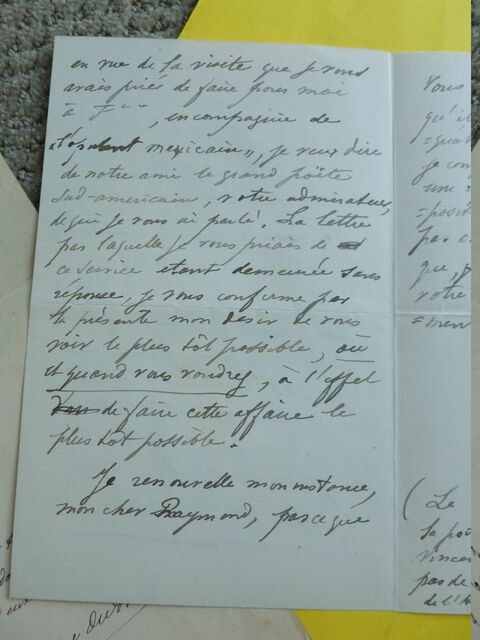 en vue de la visite que je vous
avais priée de faire pour moi
à F , en compagnie de
"l'opulent mexicain", je veux dire
de notre ami le grand poëte
Sud-américain, votre admirateur,
de qui je vous ai parlé. La lettre
par laquelle je vous priais de
ce service étant demeurée sans
réponse, je vous confirme par
la présente mon désir de vous
voir le plus tôt possible, où
et quand vous voudrez, à l'effet
de faire cette affaire le
plus tôt possible.
Je renouvelle mon instance,
mon cher Raymond, parce que
Vous
qu'il
je con
une
=posit
par
que,
votre
=men
( Le
la poë
vince
pas de
de l'A